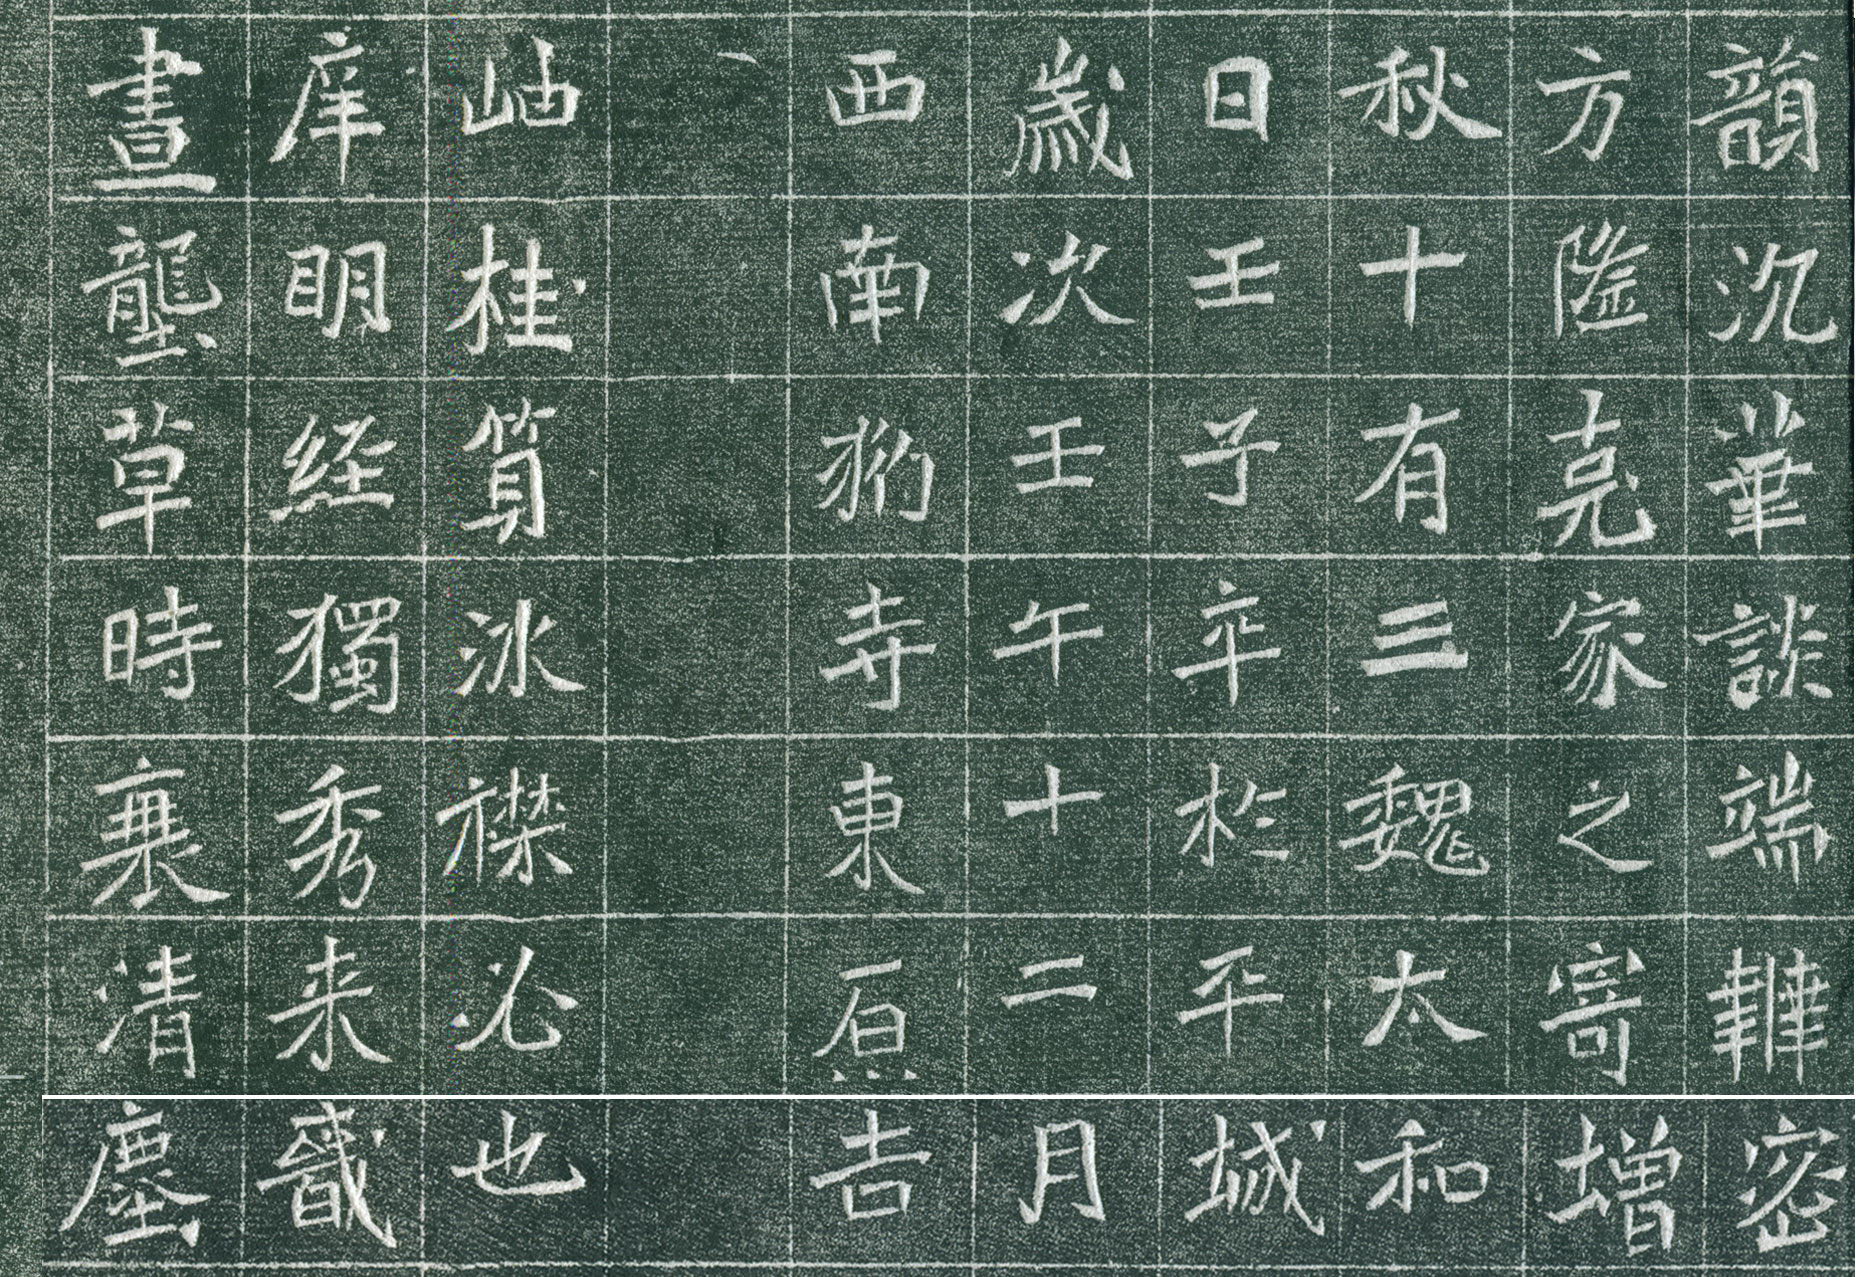 韻沉華談端韡密
方隆亮家之寄增
秋十有三魏太和
日壬子卒於平城
歲次壬午十二月
西南豹寺東原吉
桂冰襟必也
庠明經獨秀来
晝壟草時清塵